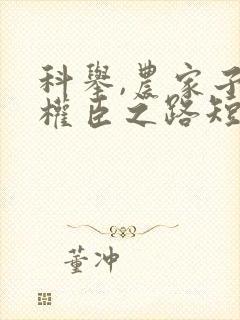 科舉,農家子
權臣之路短
董沖